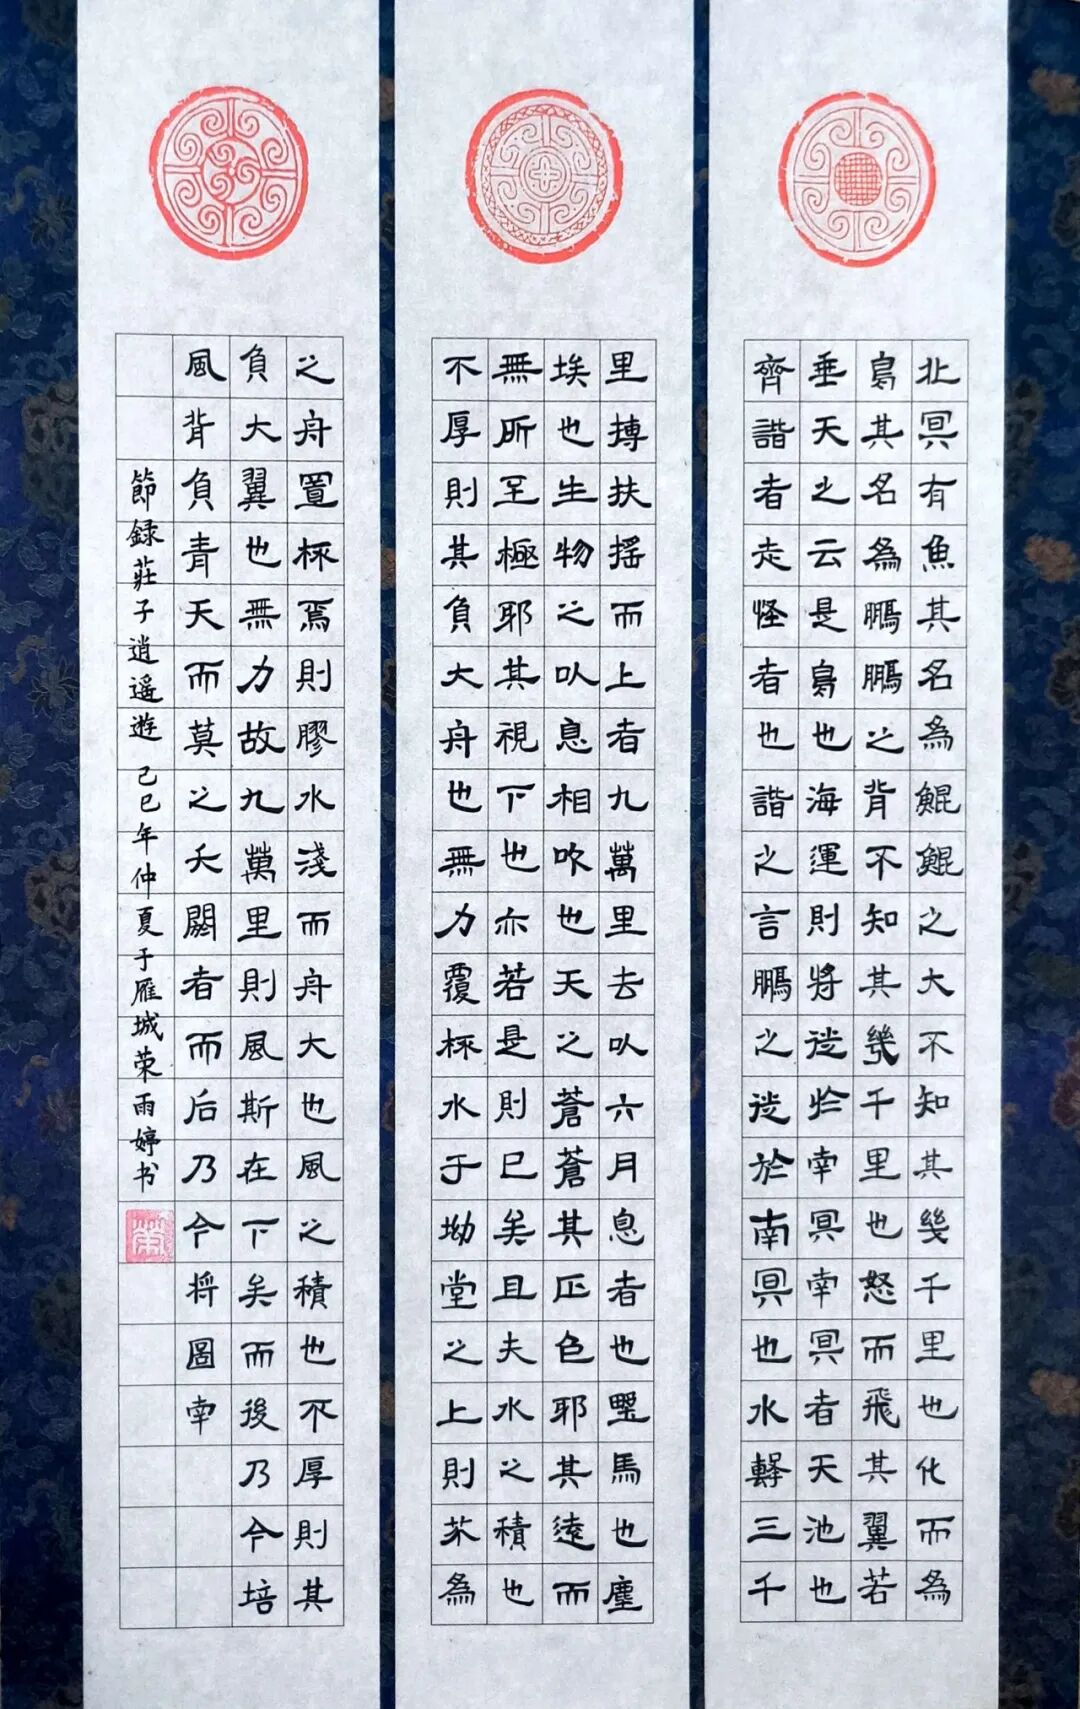 北冥有魚其名為鯤鯤之大不知其幾千里也化而為
鳥其名為鵬鵬之背不知其幾千里也怒而飛其翼若
垂天之云是鳥也海運則將徙於南冥南冥者天池也
齊諧者志怪者也諧之言鵬之徙於南冥也水擊三千
里摶扶搖而上者九萬里去以六月息者也野馬也塵
埃也生物之以息相吹也天之蒼蒼其正色耶其遠而
無所至極耶其視下也亦若是則已矣且夫水之積也
不厚則其負大舟也無力覆杯水于坳堂之上則芥為
之舟置杯焉則膠水淺而舟大也風之積也不厚則其
負大翼也無力故九萬里則風斯在下矣而後乃今培
風背負青天而莫之夭閼者而后乃今将圖南
節録莊子逍遥遊 己巳年仲夏于雁城荣雨婷书
榮